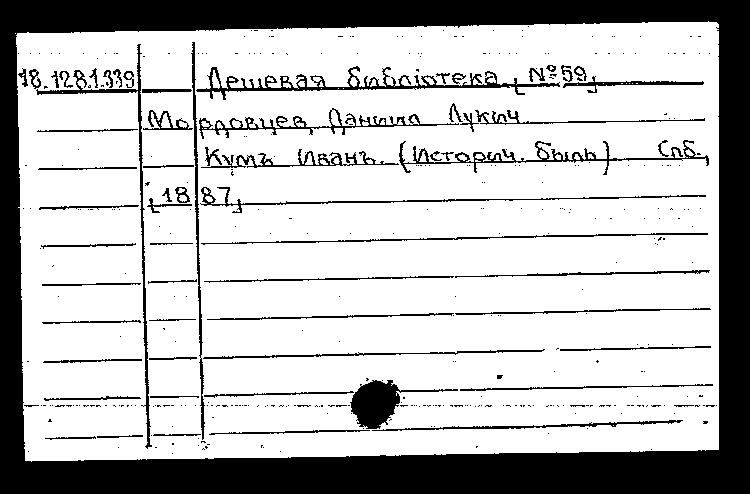 18.128.1.339 Дешевая библіотека [№59]
Мордовцев, Данила Лукич
Кумъ Иванъ. (Историч. быль) Спб.,
[1887]